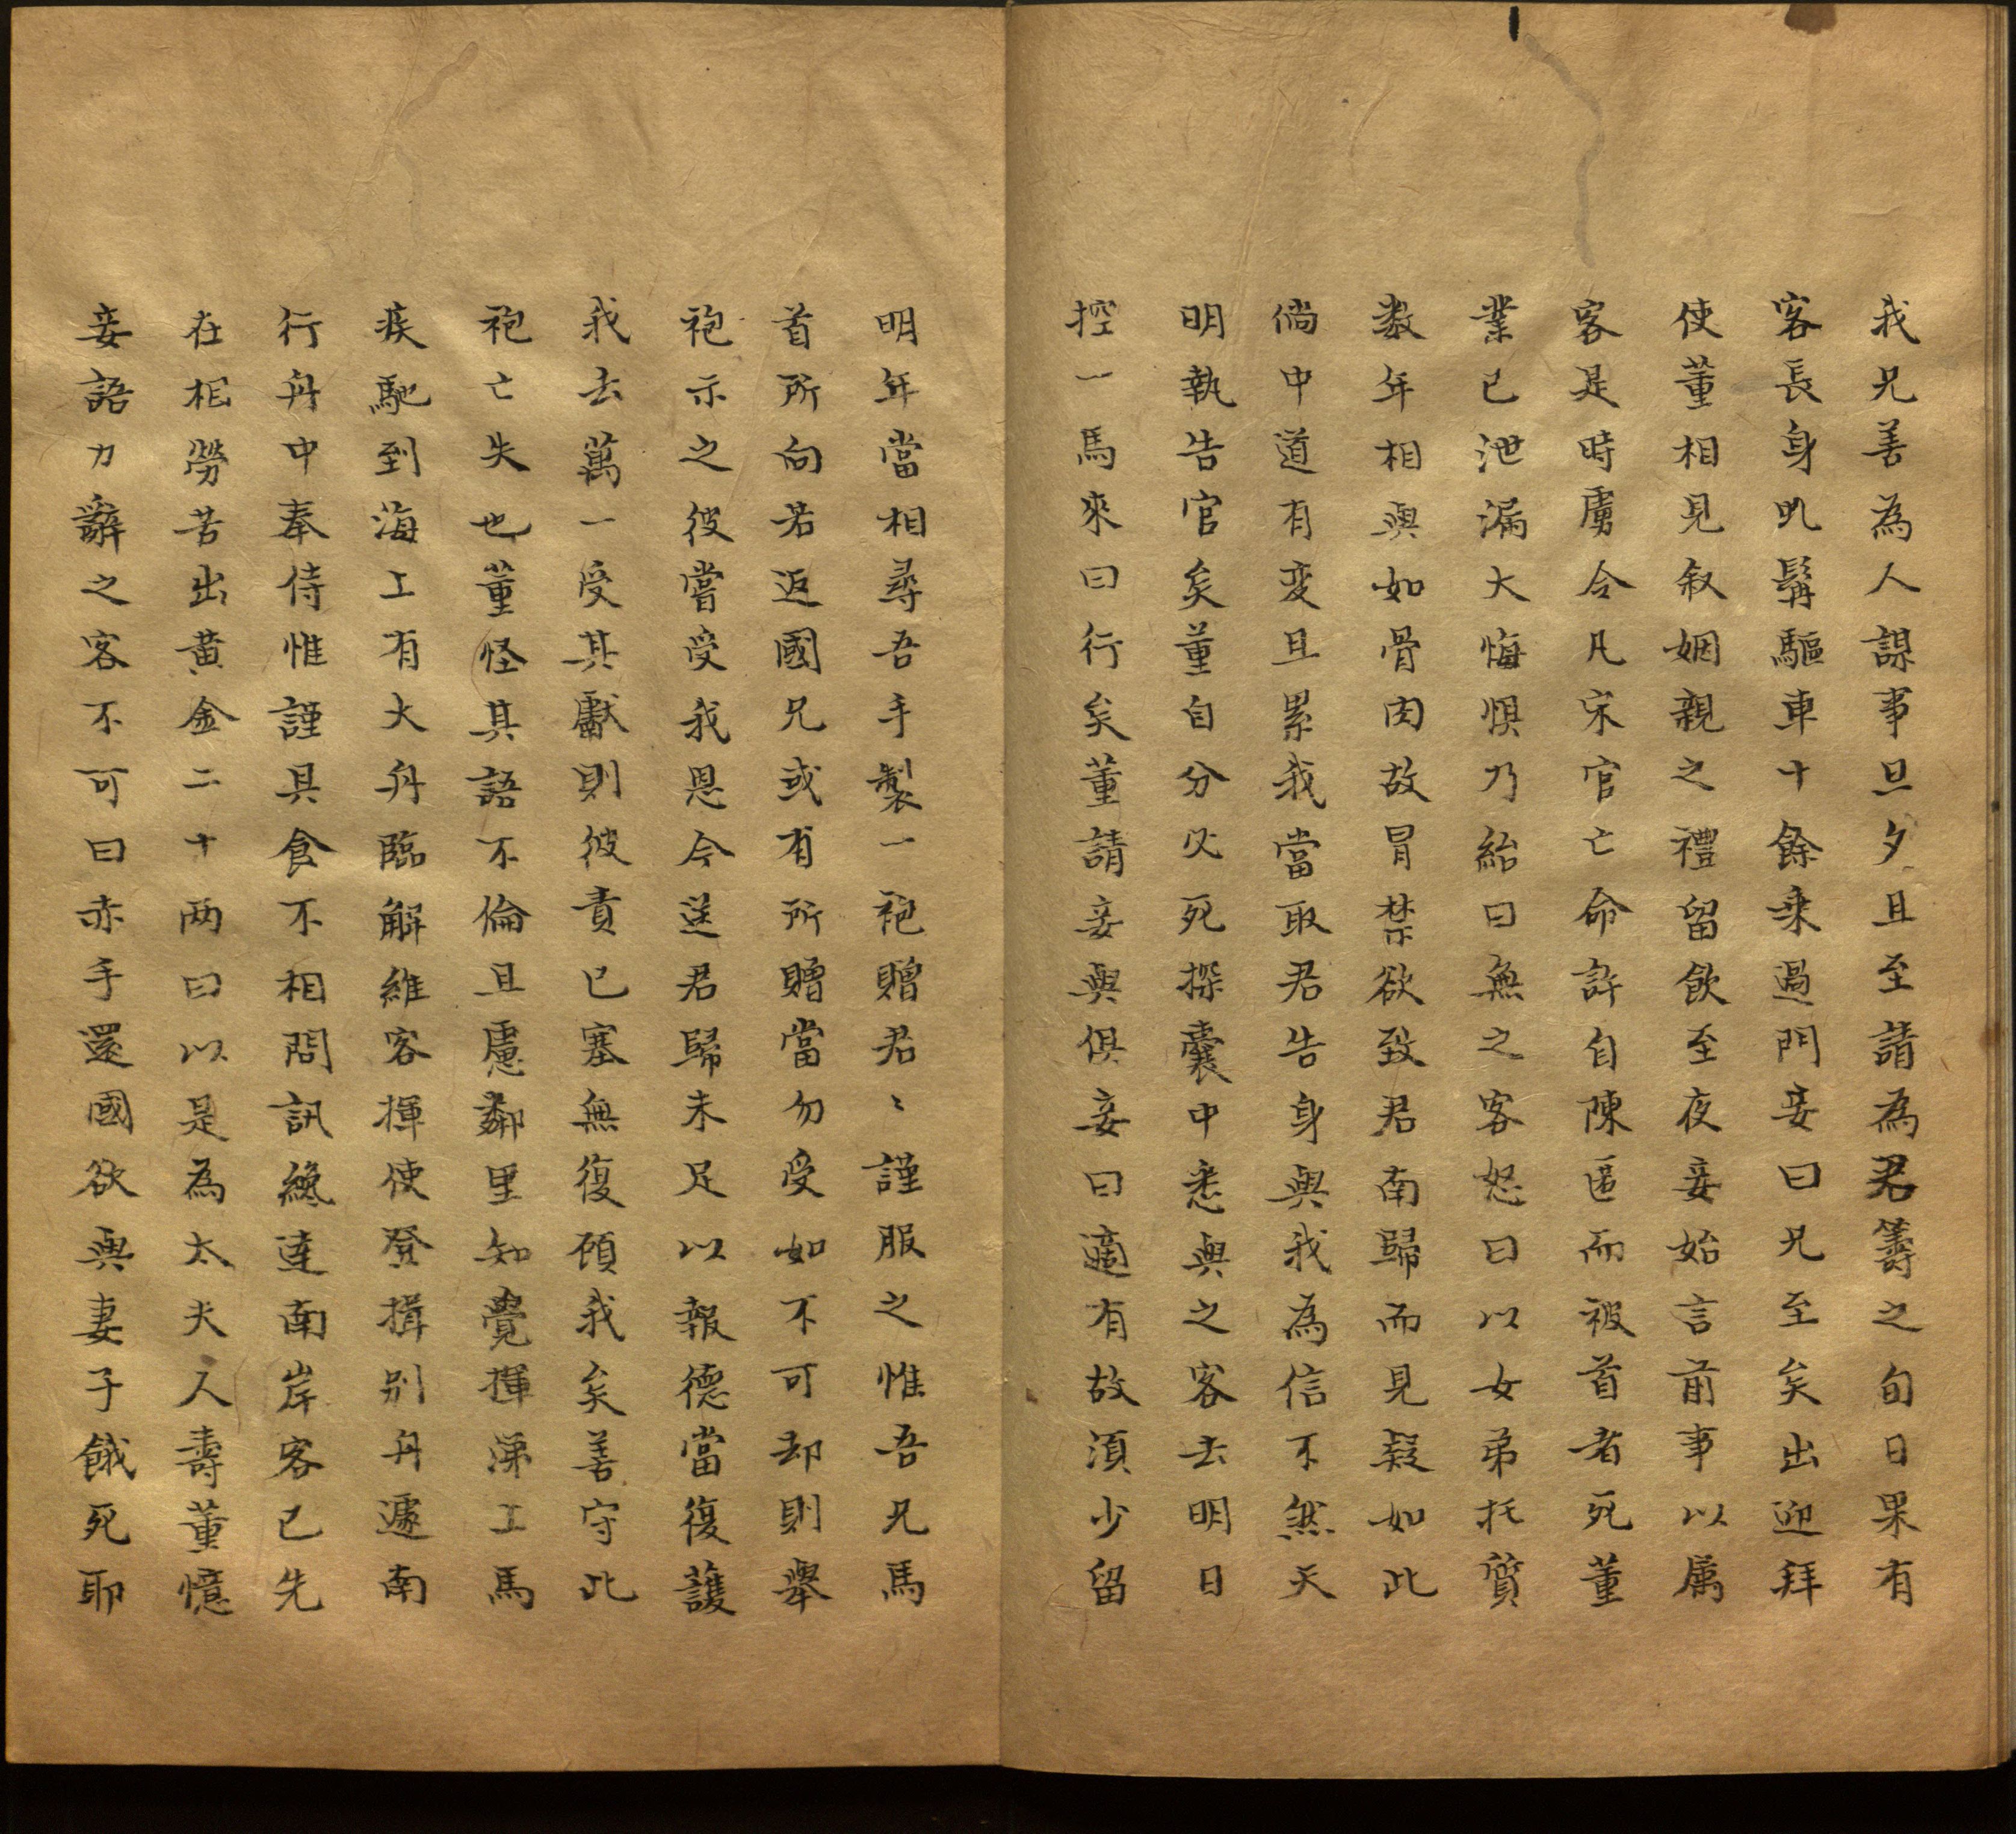 我兄善為人謀事旦夕且至請為君籌之旬日果有
客長身虬髯驅車十餘乗過門妾曰兄至矣出迎拜
使董相見叙姻親之禮留飲至夜妾始言前事以属
客是時虜令凡宋官亡命許自陳匿而被首者死董
業已泄漏大悔惧乃紿曰無之客怒曰以女弟托質
数年相與如骨肉故冒禁欲致君南歸而見疑如此
倘中道有变且累我當取君告身與我為信不然天
明執告官矣董自分必死探囊中悉與之客去明日
控一馬來曰行矣董請妾與俱妾曰適有故湏少留
明年當相尋吾手製一袍贈君〻謹服之惟吾兄馬
首所向若返國兄或有所贈當勿受如不可却則舉
袍示之彼嘗受我恩今送君歸未足以報德當復護
我去萬一受其獻則彼責已塞無復顧我矣善守此
袍亡失也董怪其語不倫且慮鄰里知覺揮涕上馬
疾馳到海上有大舟臨解維客揮使登揖别舟遽南
行舟中奉侍惟謹具食不相問訊纔達南岸客已先
在相勞苦出黄金二十两曰以是為太夫人壽董憶
妾語力辭之客不可曰赤手還國欲與妻子餓死耶